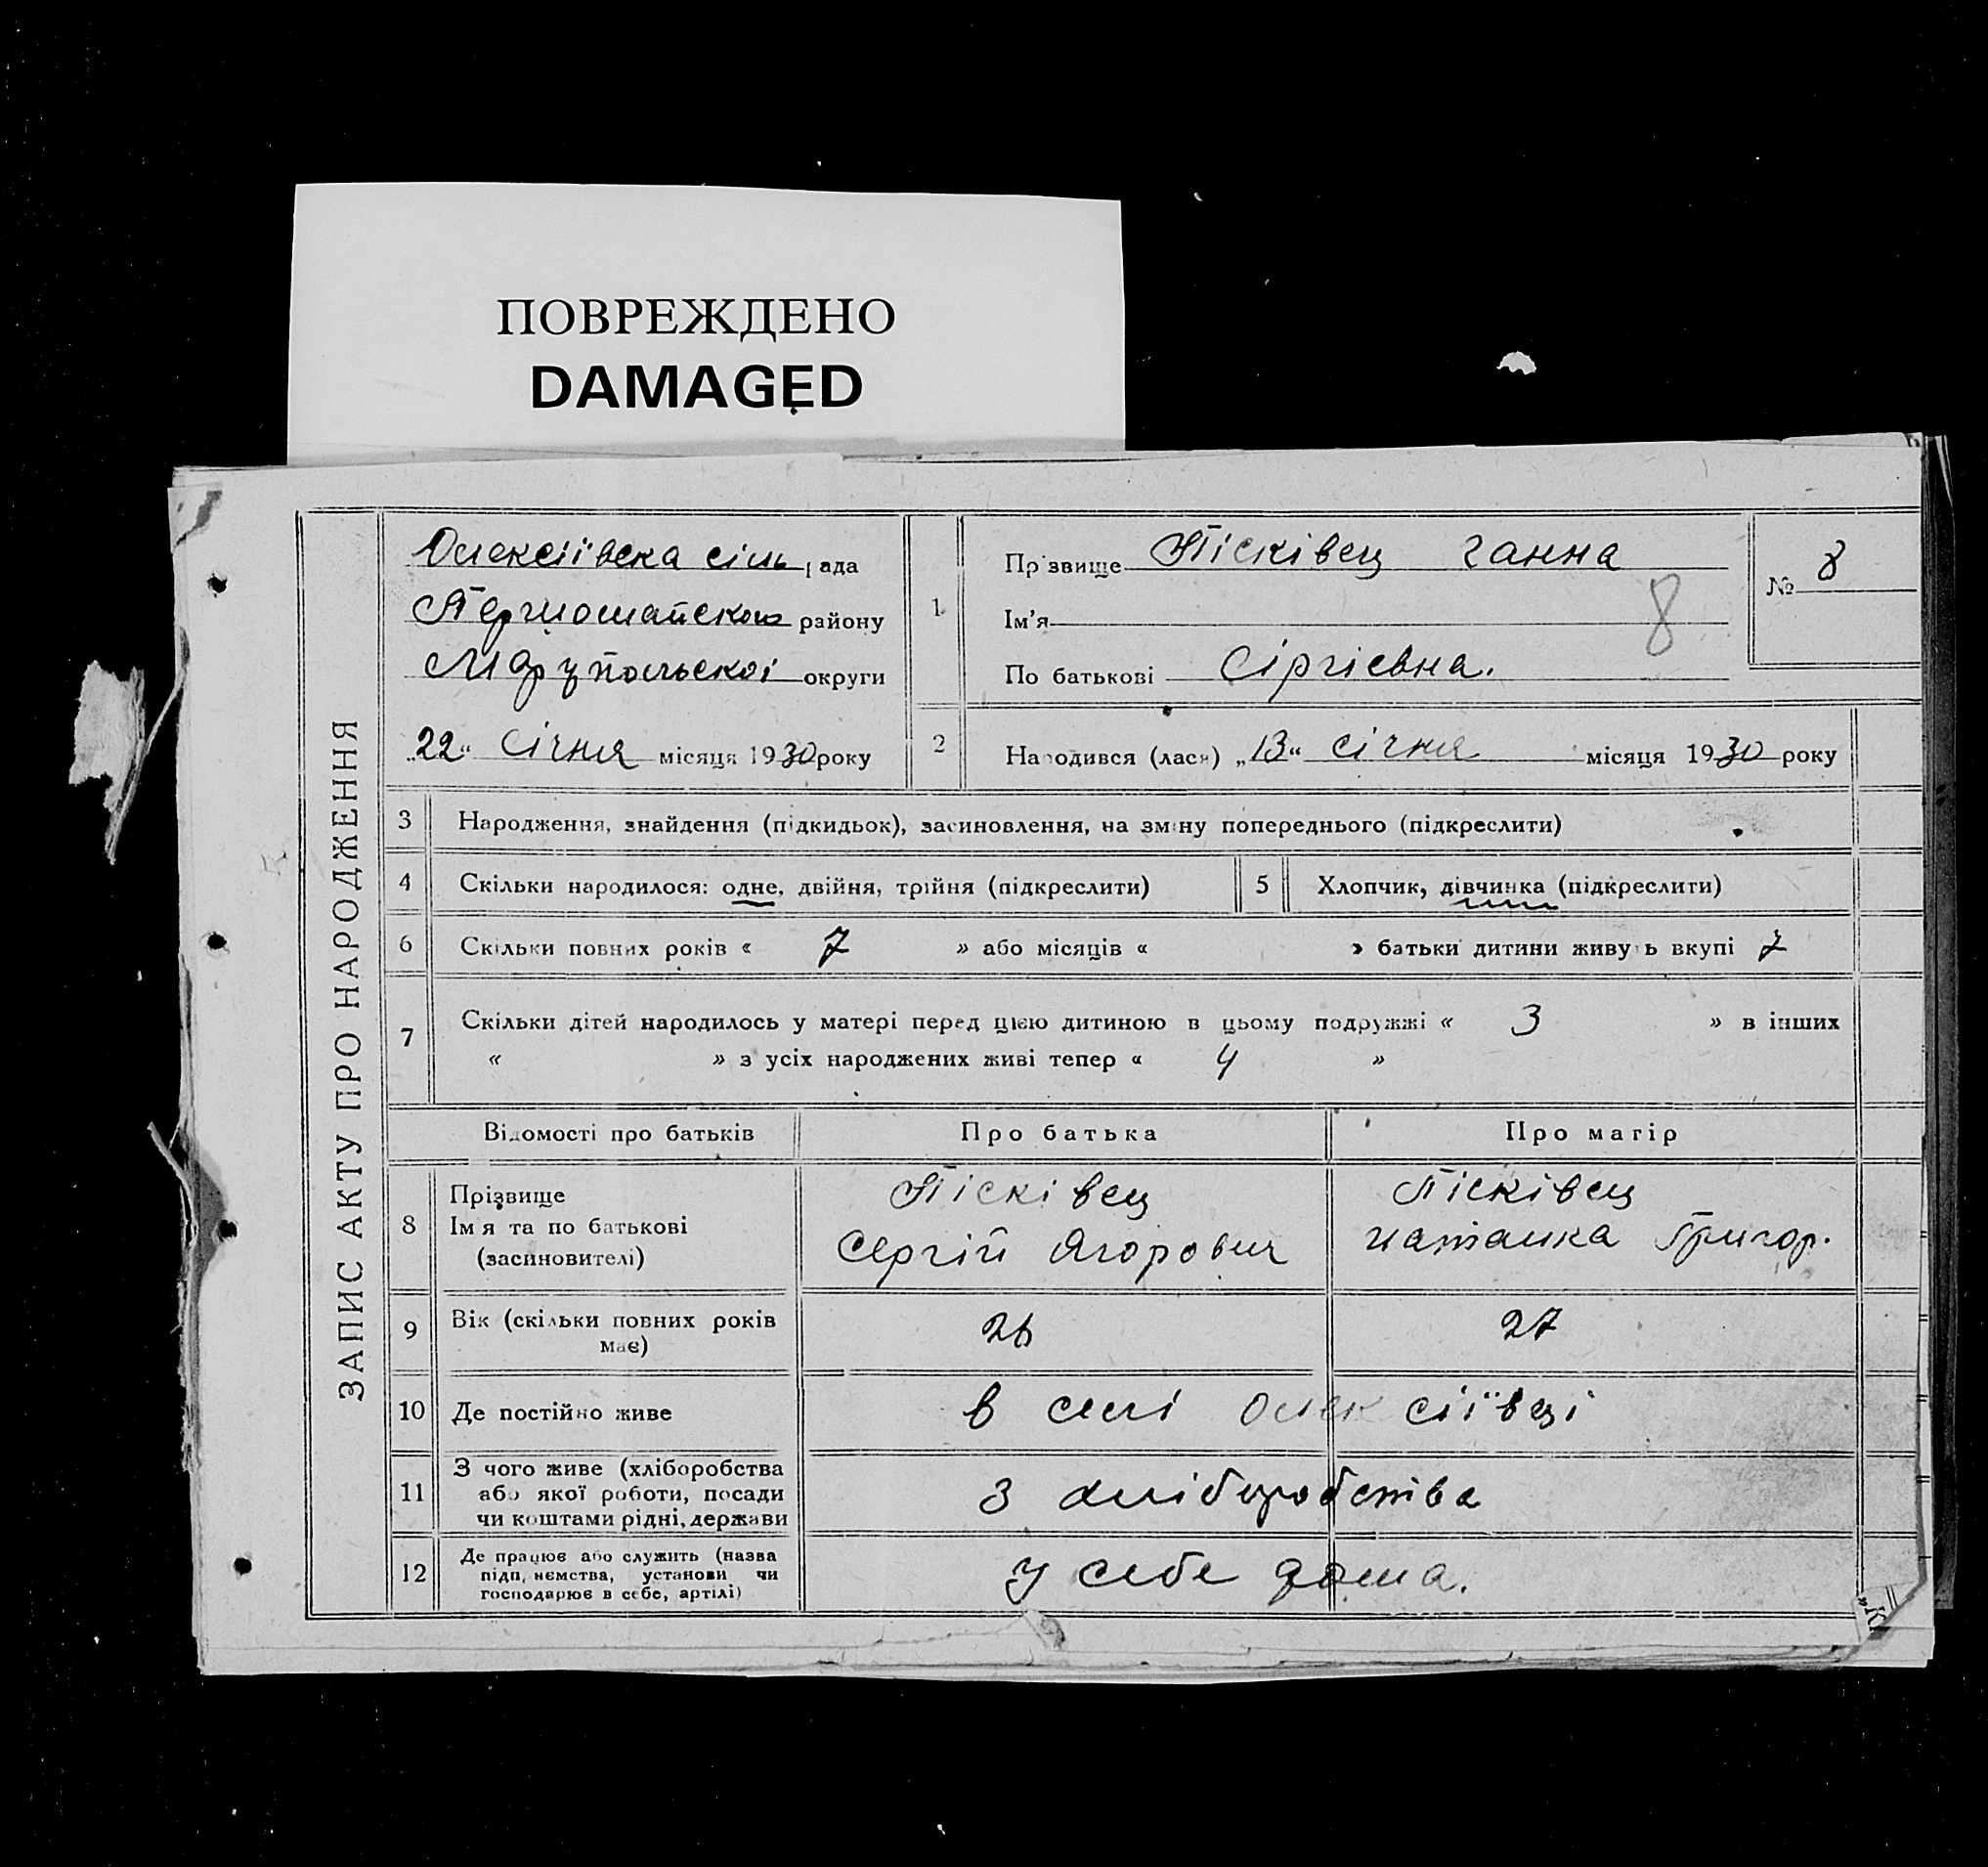 ПОВРЕЖДЕНО
DAMAGED
ЗАПИС АКТУ ПРО НАРОДЖЕННЯ
Олексіївска сіль рада
Першомайского району
Маруполескої округи
„22“ Січня місяця 1930 року
1
Прізвище Пісківец Ганна
Ім'я
8
По батькові Сіргієвна.
№ 8
2
Народився (лася) „13“ січня місяця 1930 року
3 Народження, знайдення (підкидьок), засиновлення, на зміну попереднього (підкреслити)
4 Скільки народилося: одне, двійня, трійня (підкреслити)
5 Хлопчик, дівчинка (підкреслити)
6 Скільки повних років « 7 » або місяців « » батьки дитини живуть вкупі 7
7 Скільки дітей народилось у матері перед цією дитиною в цьому подружжі « 3 » в інших
« » з усіх народжених живі тепер « 4 »
Відомості про батьків Про батька Про матір
8
Прізвище
Ім'я та по батькові
(засиновителі)
Пісківец
Сергій Ягорович
Пісківец
наталка Григор.
9 Вік (скільки повних років
має)
26
27
10 Де постійно живе
в селі Олексіївці
11
З чого живе (хліборобства
або якої роботи, посади
чи коштами рідні, держави
з хліборобства
12
Де працює або служить (назва
підп, нємства, установи чи
господарює в себе, артілі)
у себе дома.